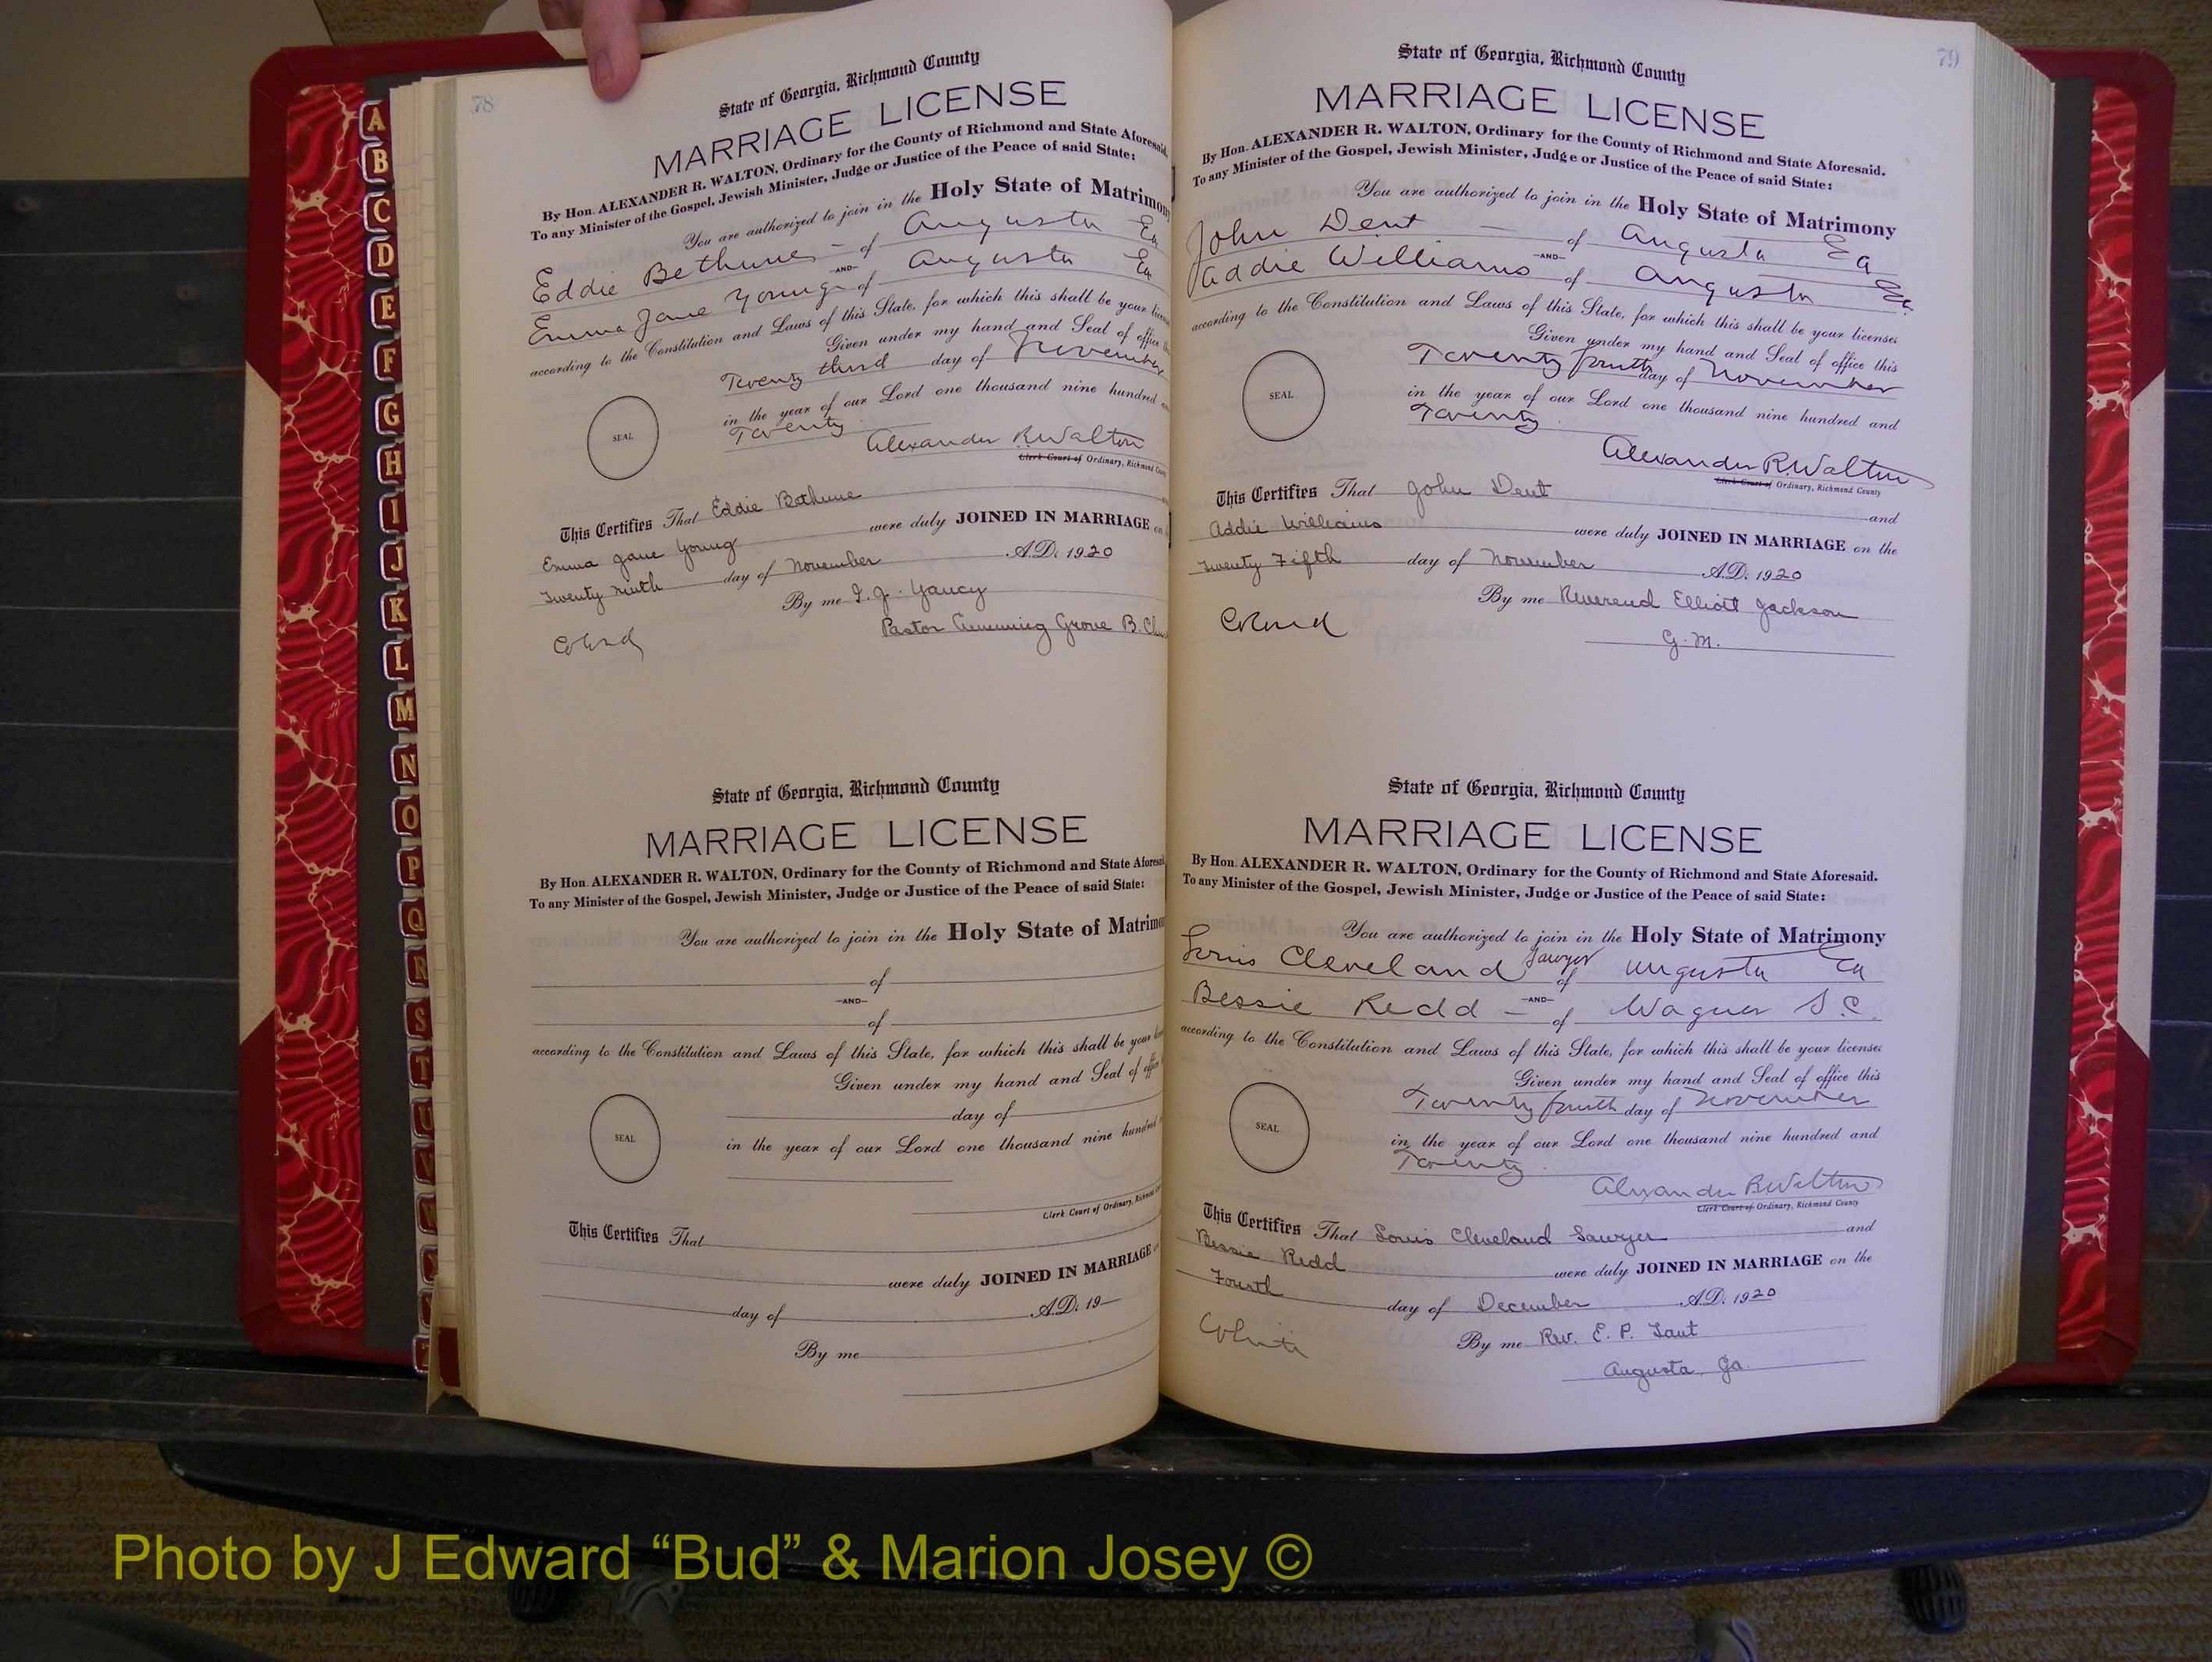 78
State of Georgia, Richmond County
MARRIAGE LICENSE
By Hon. ALEXANDER R. WALTON, Ordinary for the County of Richmond and State Aforesaid,
To any Minister of the Gospel, Jewish Minister, Judge or Justice of the Peace of said State:
You are authorized to join in the Holy State of Matrimony
Eddie Bethune - of Augusta Ga
-AND-
Emma Jane Young of Augusta Ga
according to the Constitution and Laws of this State, for which this shall be your license
Given under my hand and Seal of office
Twenty third day of November
in the year of our Lord one thousand nine hundred
Twenty
SEAL
Alexander R Walton
Clerk Court of Ordinary, Richmond
This Certifies That Eddie Bethune
Emma Jane Young were duly JOINED IN MARRIAGE on
Twenty ninth day of November A.D. 1920
By me I. J. Yancy
Pastor Cumming Grove B.
Colord
State of Georgia, Richmond County
MARRIAGE LICENSE
By Hon. ALEXANDER R. WALTON, Ordinary for the County of Richmond and State Aforesaid
To any Minister of the Gospel, Jewish Minister, Judge or Justice of the Peace of said State:
You are authorized to join in the Holy State of Matrimo
of
-AND-
of
according to the Constitution and Laws of this State, for which this shall be your
Given under my hand and Seal of office
day of
in the year of our Lord one thousand nine hundred
SEAL
Clerk Court of Ordinary, Richmond
This Certifies That
were duly JOINED IN MARRIAGE
day of A.D. 19
By me
79
State of Georgia, Richmond County
MARRIAGE LICENSE
By Hon. ALEXANDER R. WALTON, Ordinary for the County of Richmond and State Aforesaid.
To any Minister of the Gospel, Jewish Minister, Judge or Justice of the Peace of said State:
You are authorized to join in the Holy State of Matrimony
John Dent - of Augusta Ga
-AND-
Addie Williams of Augusta Ga.
according to the Constitution and Laws of this State, for which this shall be your license:
Given under my hand and Seal of office this
Twenty fourth day of November
in the year of our Lord one thousand nine hundred and
Twenty
SEAL
Alexander R Walton
Clerk Court of Ordinary, Richmond County
This Certifies That John Dent and
Addie Williams were duly JOINED IN MARRIAGE on the
Twenty Fifth day of November A.D. 1920
By me Reverend Elliott Jackson
G. M.
Colord
State of Georgia, Richmond County
MARRIAGE LICENSE
By Hon. ALEXANDER R. WALTON, Ordinary for the County of Richmond and State Aforesaid.
To any Minister of the Gospel, Jewish Minister, Judge or Justice of the Peace of said State:
You are authorized to join in the Holy State of Matrimony
Louis Cleveland Sawyer of Augusta Ga
-AND-
Bessie Redd - of Wagner S.C.
according to the Constitution and Laws of this State, for which this shall be your license:
Given under my hand and Seal of office this
Twenty fourth day of November
in the year of our Lord one thousand nine hundred and
Twenty
SEAL
Alexander R Walton
Clerk Court of Ordinary, Richmond County
This Certifies That Louis Cleveland Sawyer and
Bessie Redd were duly JOINED IN MARRIAGE on the
Fourth day of December A.D. 1920
By me Rev. E. P.
Augusta, Ga.
White
A
B
C
D
E
F
G
H
I
J
K
L
M
N
O
P
Q
R
S
T
U
V
W
Photo by J Edward “Bud” & Marion Josey ©